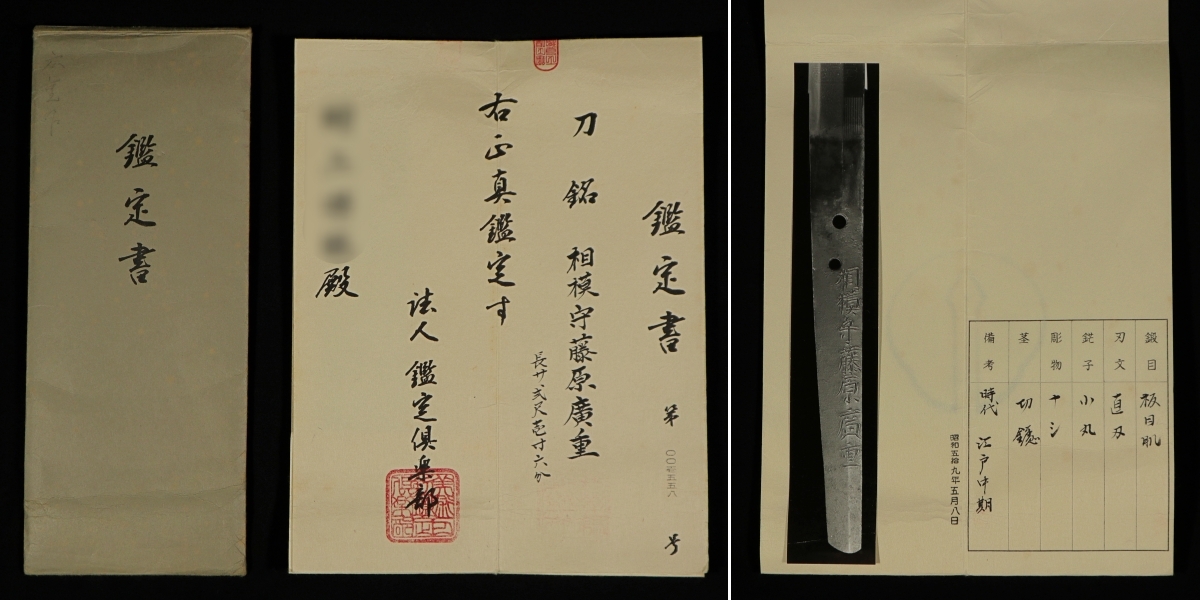 鑑定書
鑑定書
第
号
刀 銘 相模守藤原廣重
長サ弐尺壱寸六分
右正真鑑定す
法人 鑑定倶楽部
殿
相模守藤原廣重
鍛目 板目肌
刃文 直刃
鋩子 小丸
彫物 ナシ
茎 切鑢
備考 時代 江戸中期
昭和五拾九年五月八日